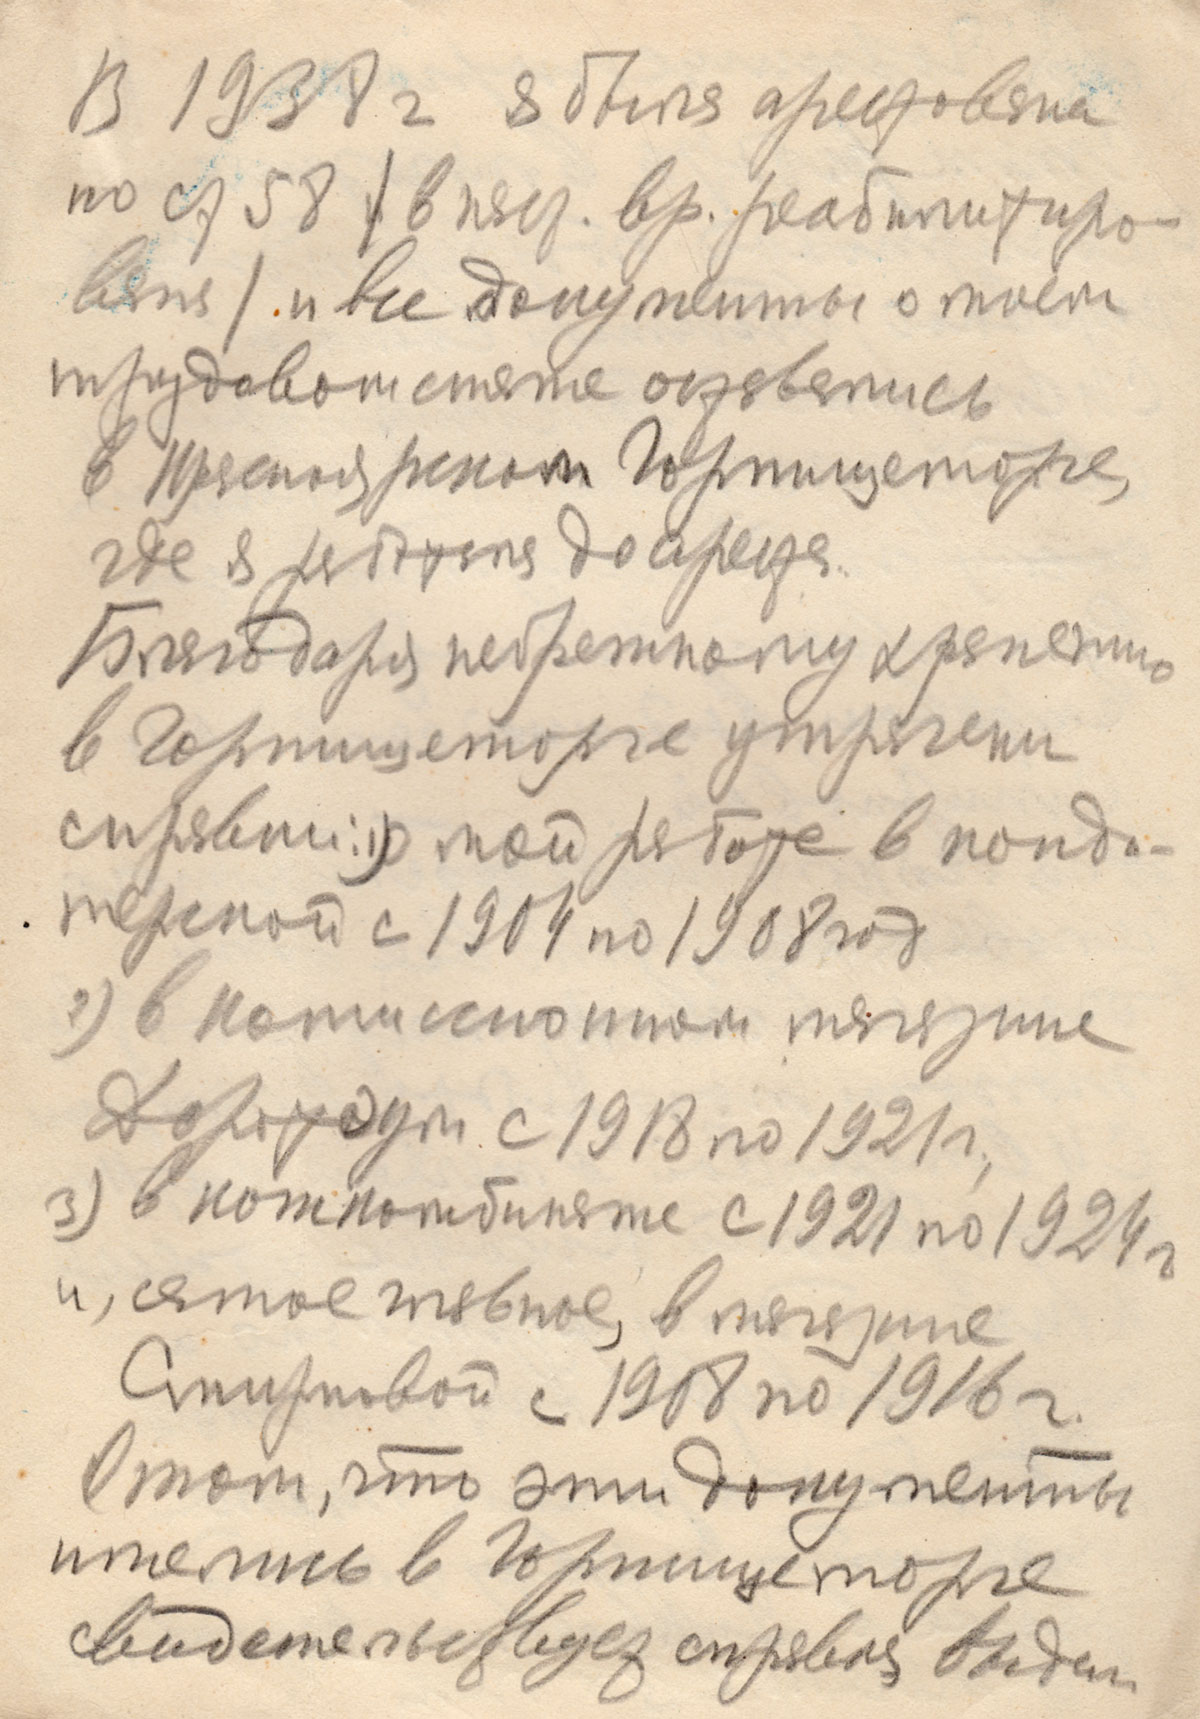 В 1938 г я была арестована
по ст 58 / в наст. вр. реабилитиро-
вана / и все документы о моем
трудовом стаже оставались
в Красноярском Горпищеторге,
где я работала до ареста.
Благодаря небрежному хранению
в Горпищеторге утрачены
справки: 1) о моей работе в конди-
терской с 1904 по 1908 год
2) в комиссионном магазине
с 1918 по 1921 г,
3) в кожкомбинате с 1921 по 1924 г
и, самое главное, в магазине
Смирновой с 1908 по 1916 г.
О том, что эти документы
имелись в Горпищеторге
свидетельствует справка, выдан